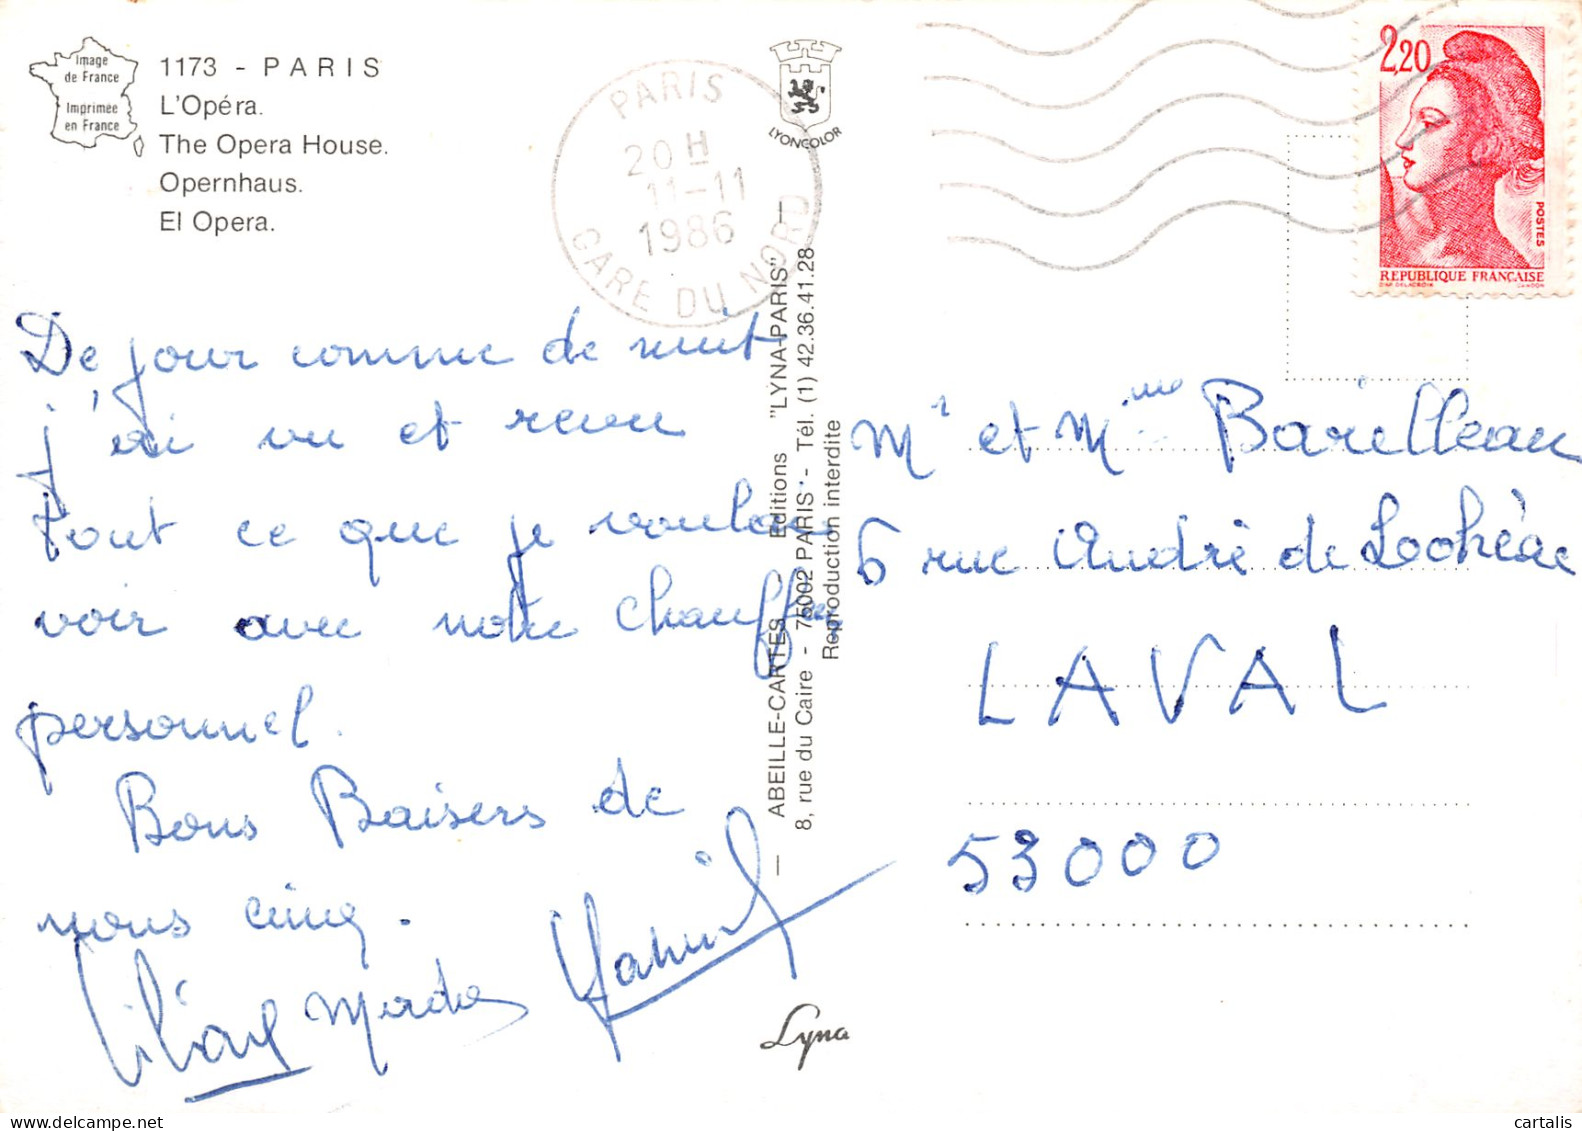 Image
de France
Imprimée
en France
1173 - PARIS
L'Opéra.
The Opera House.
Opernhaus.
El Opera.
PARIS
20 H
11-11
1986
GARE DU NORD
LYONCOLOR
2,20
POSTES
REPUBLIQUE FRANÇAISE
De jour comme de nuit
j'ai vu et revu
tout ce que je voulais
voir avec notre chauffeur
personnel.
Bons Baisers de
nous cinq.
— ABEILLE-CARTES - Editions "LYNA-PARIS" —
8, rue du Caire - 75002 PARIS - Tél. (1) 42.36.41.28
Reproduction interdite
Lyna
Mr et Mme Barilleau
6 rue André de Lohéac
LAVAL
53000
cartalis